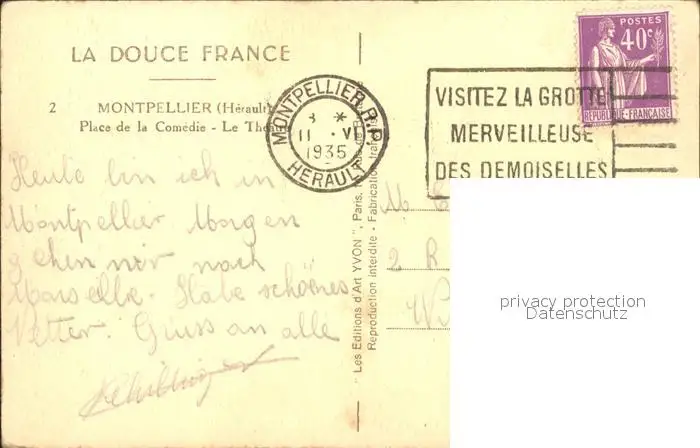 LA DOUCE FRANCE
2 MONTPELLIER (Hérault)
Place de la Comédie - Le Théâtre
MONTPELLIER R.P.
3 *
11 VI
1935
HERAULT
POSTES
40c
REPUBLIQUE FRANÇAISE
VISITEZ LA GROTTE
MERVEILLEUSE
DES DEMOISELLES
Heute bin ich in
Montpellier Morgen
gehen wir nach
Marseille. Habe schoenes
Vetter. Gruss an alle
"Les Editions d'Art YVON", Paris,
Reproduction interdite - Fabrication
M
2 R
privacy protection
Datenschutz